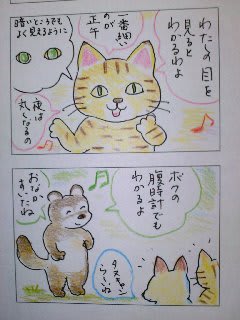 わたしの目を
見ると
わかるわよ
一番細い
のが
正午
暗いところでも
よく見えるように
夜は
丸くなるの
ボクの
腹時計でも
わかるよ
おなか
すいたね
タヌキ
らしいね